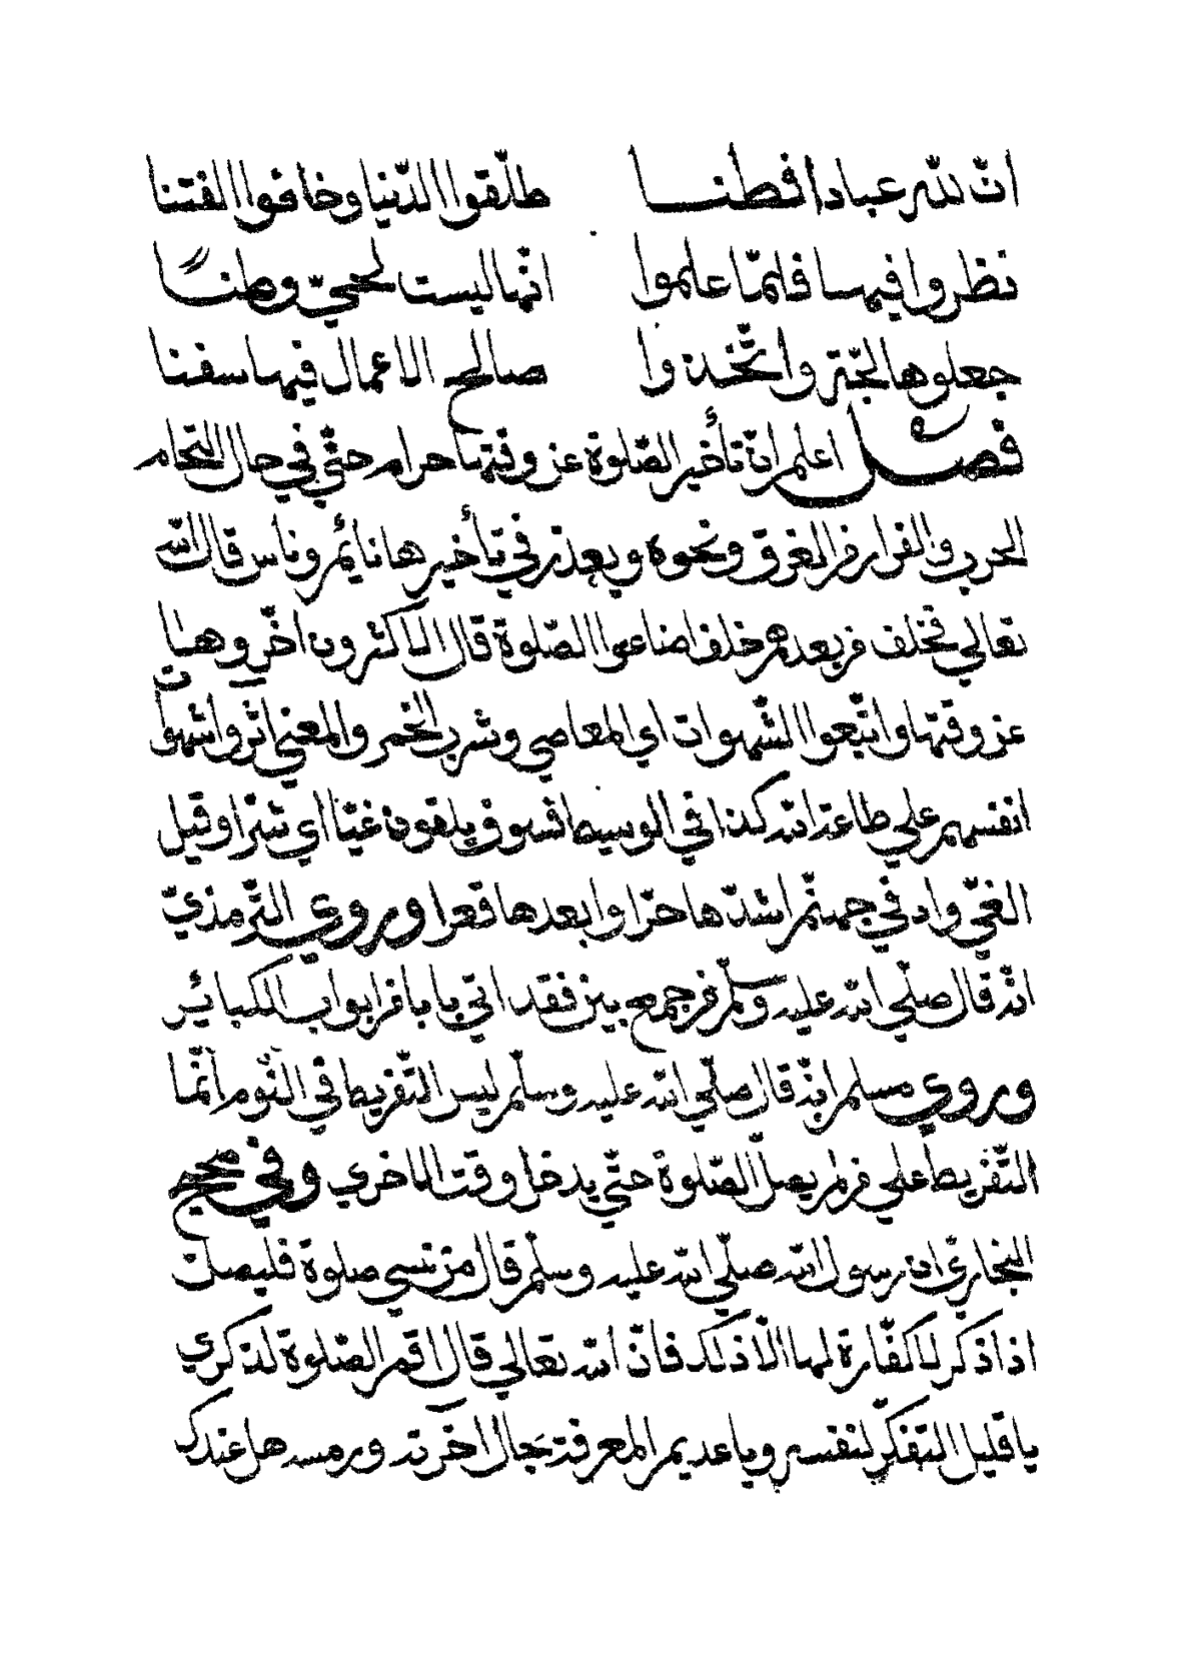 انّ للّه عبادا فطنــا طلّقوا الدّنيا وخافوا الفتنا
نظروا فيهــا فلمّا علموا انّها ليست لحيّ وطنــًا
جعلوها لجّة واتّخــذوا صالح الاعمال فيها سفنا
فصــل اعلم انّ تأخير الصّلوة عن وقتها حرام حتّي في حال التحام
الحرب والفرار من الغرق ونحوه ويعذر في تأخيرها نائم وناس قال اللّه
تعالي فخلف من بعدهم خلف اضاعوا الصّلوة قال الاكثرون اخّروها
عن وقتها واتّبعوا الشّهوات اي المعاصي وشرب الخمر والمعني آثروا شهوات
انفسهم علي طاعة اللّه كذا في الوسيط فسوف يلقون غيّا اي شرّا وقيل
الغيّ واد في جهنّم اشدّها حرّا وابعدها قعرا وروي التّرمذيّ
انّه قال صلّي اللّه عليه وسلّم من جمع بين فقد اتي بابا من ابواب الكبائر
وروي مسلم انّه قال صلّي اللّه عليه وسلّم ليس التّفريط في النّوم انّما
التّفريط علي من لم يصلّ الصّلوة حتّي يدخل وقت الاخري وفي صحيح
البخاريّ انّ رسول اللّه صلّي اللّه عليه وسلّم قال من نسي صلوة فليصلّ
اذا ذكر لا كفّارة لها الّا ذلك فانّ اللّه تعالي قال اقم الصّلوة لذكري
يا قليل التفكّر لنفسه ويا عديم المعرفة بحال آخرته ورمسه هل عندك